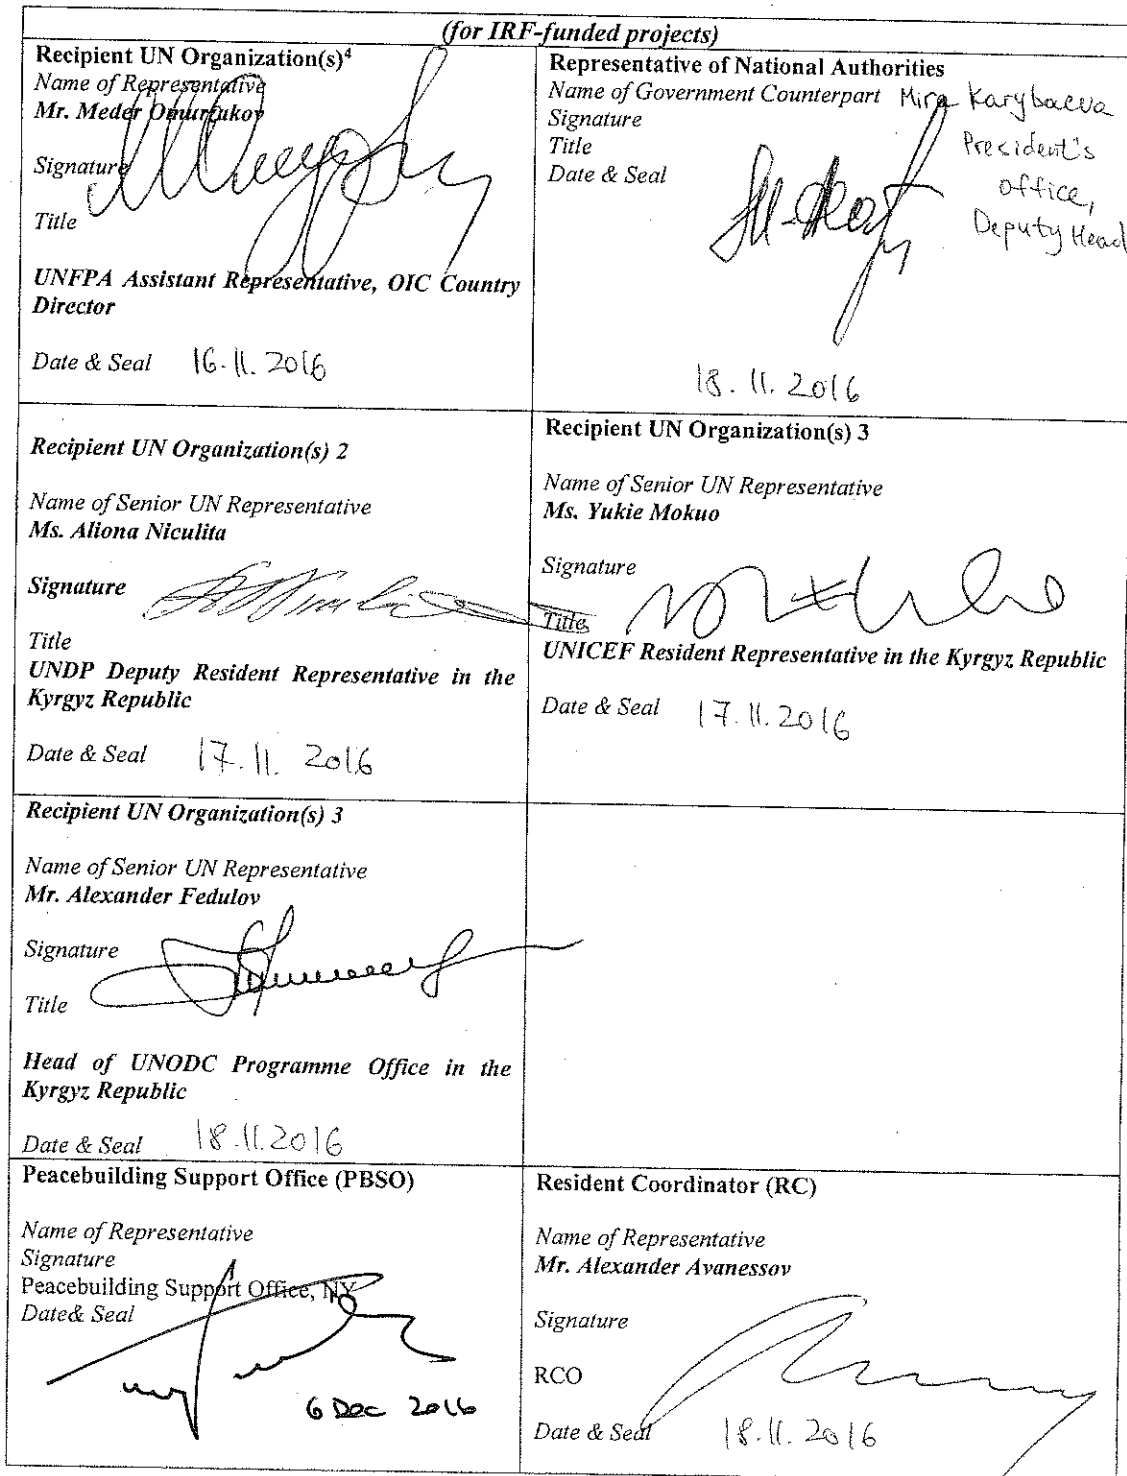 (for IRF-funded projects)
Recipient UN Organization(s)4
Name of Representative
Mr. Meder Omurzakov
Signature
Title
UNFPA Assistant Representative, OIC Country
Director
Date & Seal 16.11.2016
Representative of National Authorities
Name of Government Counterpart Mira Karybaeva
Signature
Title President's
Date & Seal office,
Deputy Head
18.11.2016
Recipient UN Organization(s) 2
Name of Senior UN Representative
Ms. Aliona Niculita
Signature
Title
UNDP Deputy Resident Representative in the
Kyrgyz Republic
Date & Seal 17.11.2016
Recipient UN Organization(s) 3
Name of Senior UN Representative
Ms. Yukie Mokuo
Signature
Title
UNICEF Resident Representative in the Kyrgyz Republic
Date & Seal 17.11.2016
Recipient UN Organization(s) 3
Name of Senior UN Representative
Mr. Alexander Fedulov
Signature
Title
Head of UNODC Programme Office in the
Kyrgyz Republic
Date & Seal 18.11.2016
Peacebuilding Support Office (PBSO)
Name of Representative
Signature
Peacebuilding Support Office, NY
Date& Seal
6 Dec 2016
Resident Coordinator (RC)
Name of Representative
Mr. Alexander Avanessov
Signature
RCO
Date & Seal 18.11.2016